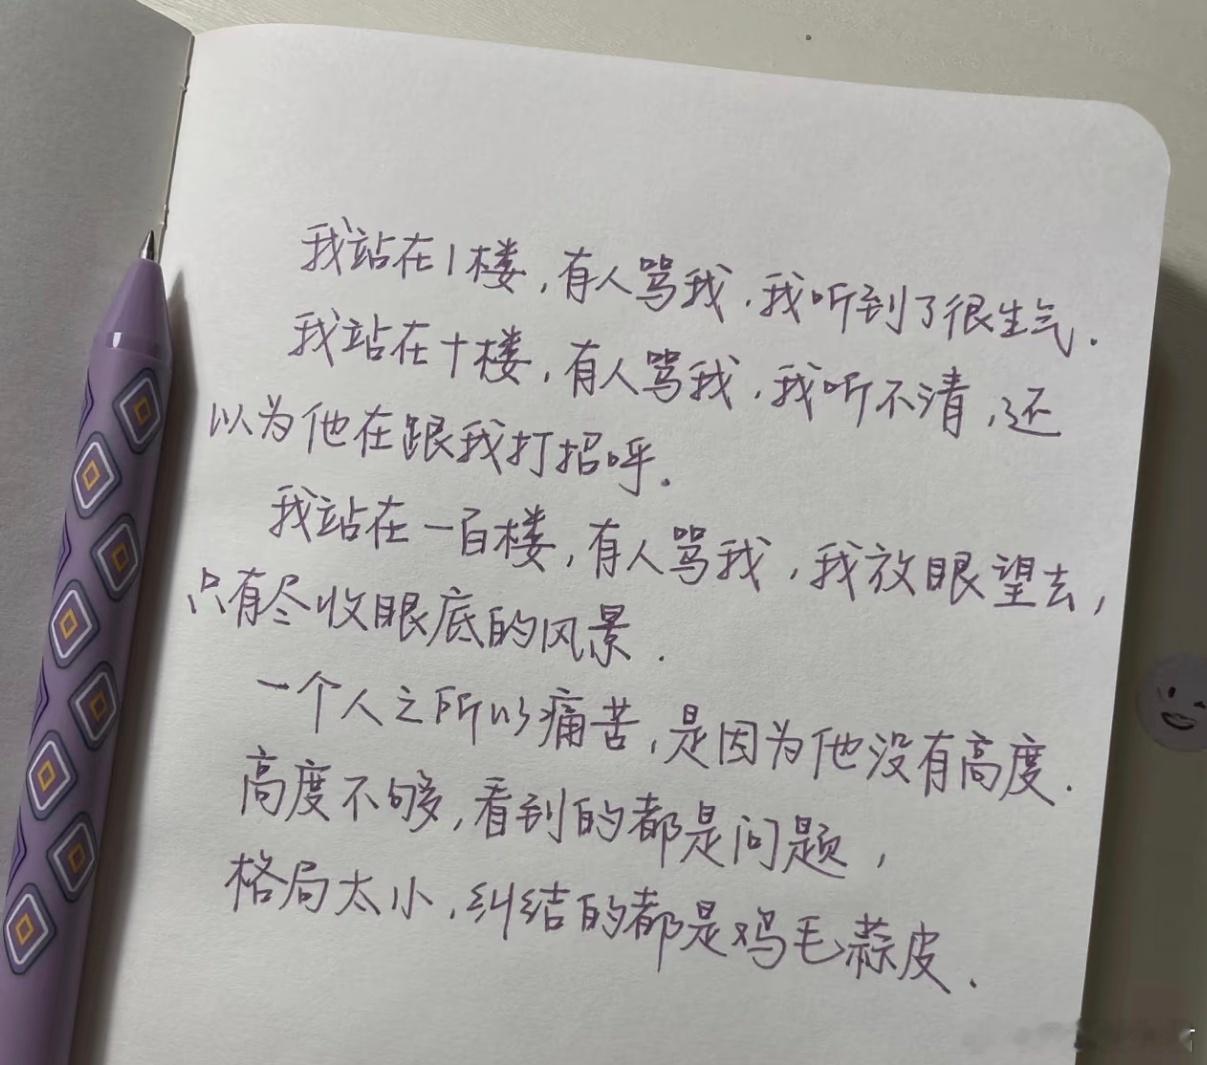 我站在1楼,有人骂我,我听到了很生气.
我站在十楼,有人骂我,我听不清,还
以为他在跟我打招呼.
我站在一百楼,有人骂我,我放眼望去,
只有尽收眼底的风景.
一个人之所以痛苦,是因为他没有高度.
高度不够,看到的都是问题,
格局太小,纠结的都是鸡毛蒜皮.